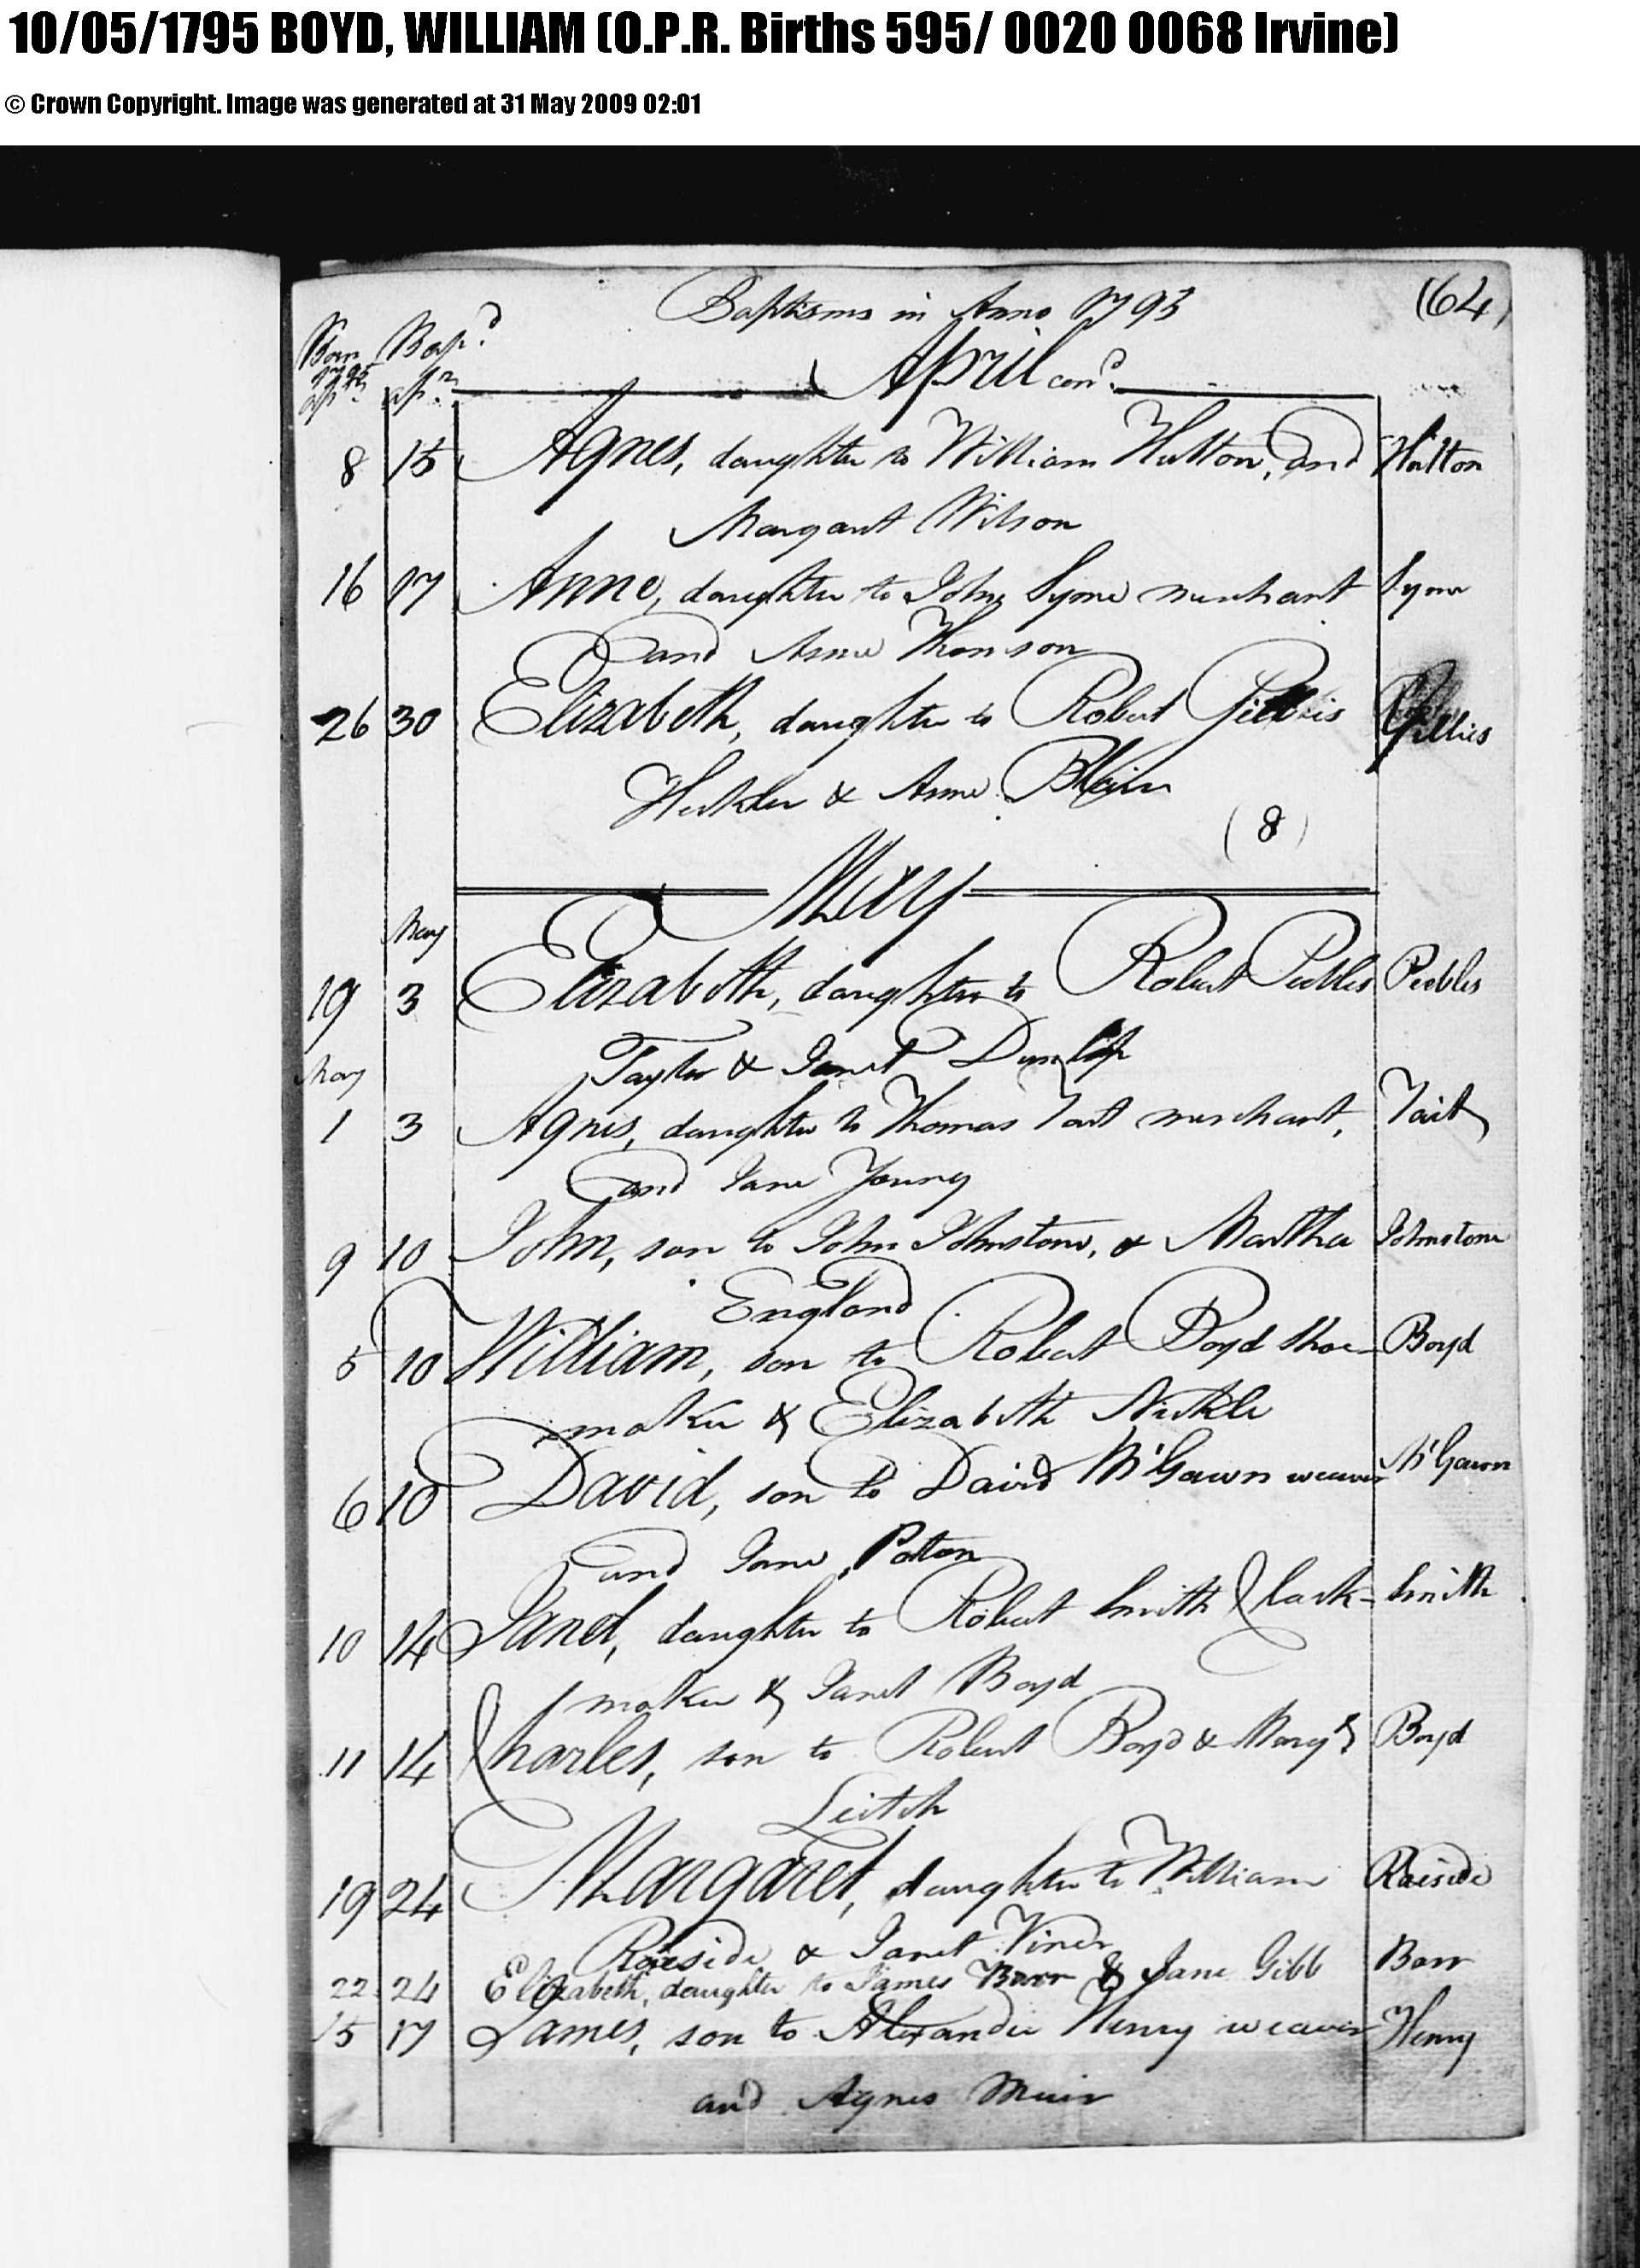 10/05/1795 BOYD, WILLIAM (O.P.R. Births 595/ 0020 0068 Irvine)
© Crown Copyright. Image was generated at 31 May 2009 02:01
Baptisms in Anno 1795 (64)
Born Bapd
1795
Apr. Apr. April cond.
8 15 Agnes, daughter to William Hutton, and Hutton
Margaret Wilson
16 17 Anne, daughter to John Syme merchant Syme
and Anne Thomson
26 30 Elizabeth, daughter to Robert Gillies Gillies
Hekler & Anne Blair
(8)
May
May
19 3 Elizabeth, daughter to Robert Peebles Peebles
Taylor & Janet Dunlop
May
1 3 Agnes, daughter to Thomas Tait merchant, Tait
and Jane Young
9 10 John, son to John Johnstone, & Martha Johnstone
England
5 10 William, son to Robert Boyd shoe- Boyd
maker & Elizabeth Nickle
6 10 David, son to David McGawn weaver McGawn
and Jane Paton
10 14 Janet, daughter to Robert Smith Clock- Smith
maker & Janet Boyd
11 14 Charles, son to Robert Boyd & Margt Boyd
Leitch
19 24 Margaret, daughter to William Raeside
Raeside & Janet
22 24 Elizabeth, daughter to James Barr & Jane Gibb Barr
15 17 James, son to Alexander Henry weaver Henry
and Agnes Muir